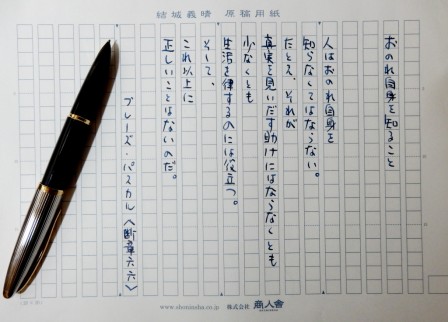 結城義晴 原稿用紙
おのれ自身を知ること
人はおのれ自身を
知らなくてはならない。
たとえ、それが
真実を見いだす助けにはならなくとも
少なくとも
生活を律するのには役立つ。
そして、
これ以上に
正しいことはないのだ。
ブレーズ・パスカル〈断章六六〉
www.shoninsha.co.jp 株式会社 商人舎